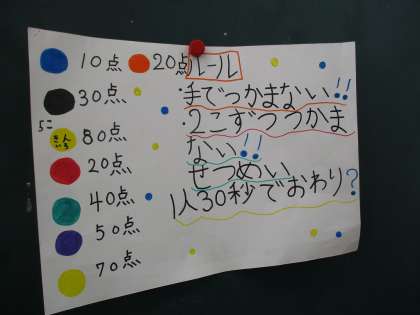 10点
20点
30点
5こ
きんいろ
80点
20点
40点
50点
70点
ルール
・手でつかまない!!
・2こずつつかま
ない!!
せつめい
1人30秒でおわり?